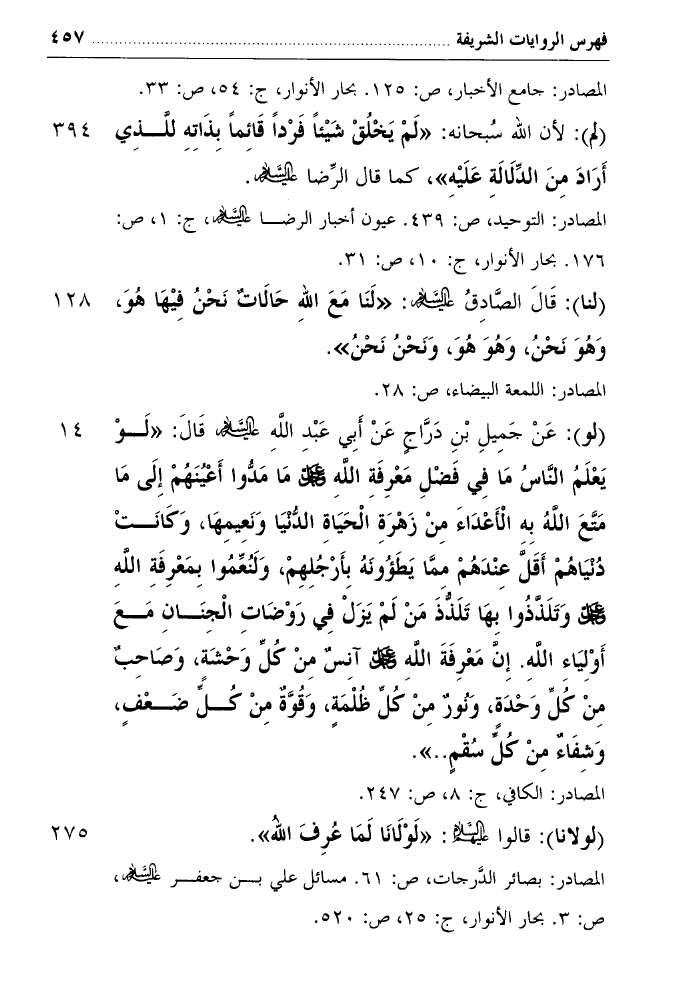 فهرس الروايات الشريفة ........................................................ ٤٥٧
المصادر: جامع الأخبار، ص: ١٢٥. بحار الأنوار، ج: ٥٤، ص: ٣٣.
(لم): لأن الله سُبحانه: «لَمْ يَخْلُقْ شَيْئاً فَرْداً قَائِماً بِذَاتِهِ لِلَّــذِي ٣٩٤
أَرَادَ مِنَ الدِّلَالَةِ عَلَيْهِ»، كما قال الرِّضا عليه السلام.
المصادر: التوحيد، ص: ٤٣٩. عيون أخبار الرضــا عليه السلام، ج: ١، ص:
١٧٦. بحار الأنوار، ج: ١٠، ص: ٣١.
(لنا): قَالَ الصَّادِقُ عليه السلام: «لَنَا مَعَ اللهِ حَالَاتٌ نَحْنُ فِيْهَا هُوَ، ١٢٨
وَهُوَ نَحْنُ، وَهُوَ هُوَ، وَنَحْنُ نَحْنُ».
المصادر: اللمعة البيضاء، ص: ٢٨.
(لو): عَنْ جَمِيلِ بْنِ دَرَّاجٍ عَنْ أَبِي عَبْدِ اللَّهِ عليه السلام قَالَ: «لَــوْ ١٤
يَعْلَمُ النَّاسُ مَا فِي فَضْلِ مَعْرِفَةِ اللَّهِ مَا مَدُّوا أَعْيُنَهُمْ إِلَى مَا
مَتَّعَ اللَّهُ بِهِ الْأَعْدَاءَ مِنْ زَهْرَةِ الْحَيَاةِ الدُّنْيَا وَنَعِيمِهَا، وَكَانَــتْ
دُنْيَاهُمْ أَقَلَّ عِنْدَهُمْ مِمَّا يَطَؤُونَهُ بِأَرْجُلِهِمْ، وَلَنُعِّمُوا بِمَعْرِفَةِ اللَّهِ
وَتَلَذَّذُوا بِهَا تَلَذُّذَ مَنْ لَمْ يَزَلْ فِي رَوْضَاتِ الْجِنَــانِ مَــعَ
أَوْلِيَاءِ اللَّهِ. إِنَّ مَعْرِفَةَ اللَّهِ آنِسٌ مِنْ كُلِّ وَحْشَةٍ، وَصَاحِبٌ
مِنْ كُلِّ وَحْدَةٍ، وَنُورٌ مِنْ كُلِّ ظُلْمَةٍ، وَقُوَّةٌ مِنْ كُــلِّ ضَــعْفٍ،
وَشِفَاءٌ مِنْ كُلِّ سُقْمٍ..».
المصادر: الكافي، ج: ٨، ص: ٢٤٧.
(لولانا): قالوا عليهم السلام: «لَوْلَانَا لَمَا عُرِفَ اللهُ». ٢٧٥
المصادر: بصائر الدَّرجات، ص: ٦١. مسائل علي بــن جعفــر عليه السلام،
ص: ٣. بحار الأنوار، ج: ٢٥، ص: ٥٢٠.